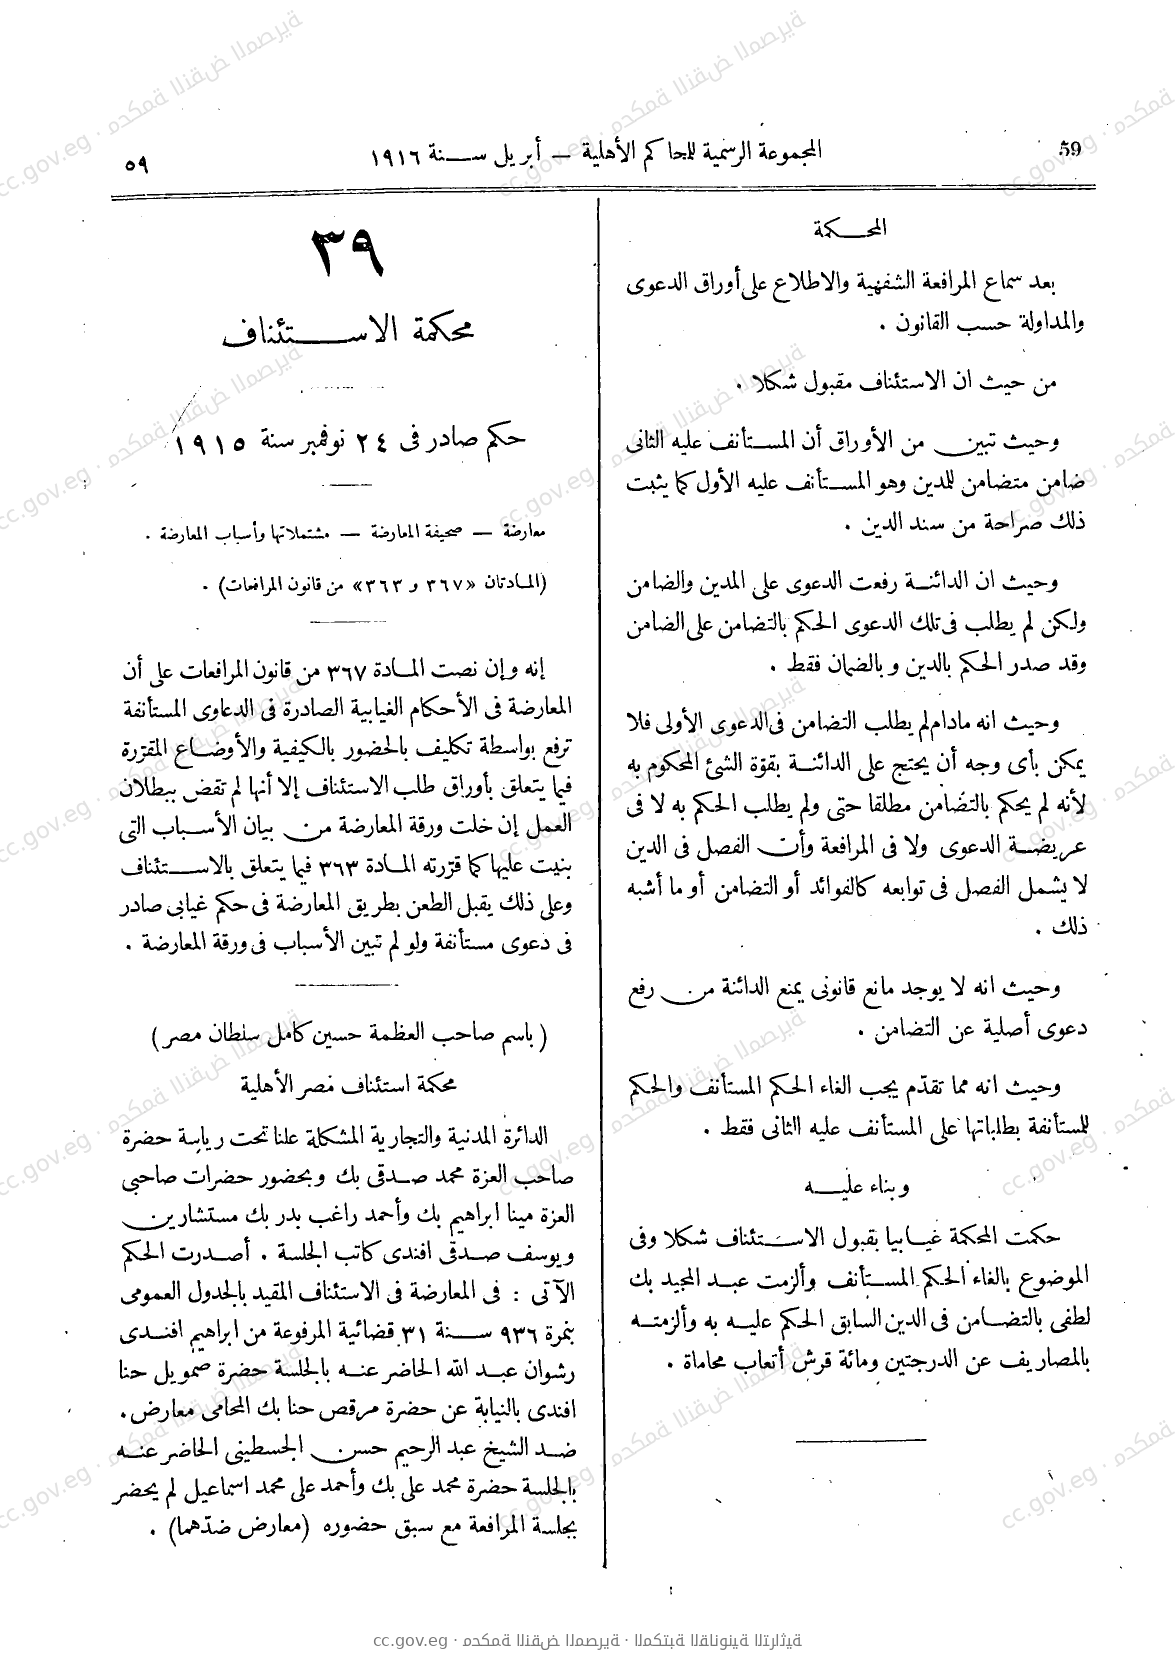 59
المجموعة الرسمية للمحاكم الأهلية — أبريل سنة ١٩١٦
٥٩
المحكمة
بعد سماع المرافعة الشفهية والاطلاع على أوراق الدعوى
والمداولة حسب القانون .
من حيث ان الاستئناف مقبول شكلا .
وحيث تبين من الأوراق أن المستأنف عليه الثانى
ضامن متضامن للدين وهو المستأنف عليه الأول كما يثبت
ذلك صراحة من سند الدين .
وحيث ان الدائنة رفعت الدعوى على المدين والضامن
ولكن لم يطلب فى تلك الدعوى الحكم بالتضامن على الضامن
وقد صدر الحكم بالدين وبالضمان فقط .
وحيث انه مادام لم يطلب التضامن فى الدعوى الأولى فلا
يمكن بأى وجه أن يحتج على الدائنة بقوّة الشئ المحكوم به
لأنه لم يحكم بالتضامن مطلقا حتى ولم يطلب الحكم به لا فى
عريضة الدعوى ولا فى المرافعة وأن الفصل فى الدين
لا يشمل الفصل فى توابعه كالفوائد أو التضامن أو ما أشبه
ذلك .
وحيث انه لا يوجد مانع قانونى يمنع الدائنة من رفع
دعوى أصلية عن التضامن .
وحيث انه مما تقدّم يجب الغاء الحكم المستأنف والحكم
للمستأنفة بطلباتها على المستأنف عليه الثانى فقط .
وبناء عليه
حكمت المحكمة غيابيا بقبول الاستئناف شكلا وفى
الموضوع بالغاء الحكم المستأنف وألزمت عبد المجيد بك
لطفى بالتضامن فى الدين السابق الحكم عليه به وألزمته
بالمصاريف عن الدرجتين ومائة قرش أتعاب محاماة .
٣٩
محكمة الاستئناف
حكم صادر فى ٢٤ نوفمبر سنة ١٩١٥
معارضة — صحيفة المعارضة — مشتملاتها وأسباب المعارضة .
(المادتان «٣٦٧ و ٣٦٣» من قانون المرافعات) .
إنه وإن نصت المادة ٣٦٧ من قانون المرافعات على أن
المعارضة فى الأحكام الغيابية الصادرة فى الدعاوى المستأنفة
ترفع بواسطة تكليف بالحضور بالكيفية والأوضاع المقرّرة
فيما يتعلق بأوراق طلب الاستئناف إلا أنها لم تقض ببطلان
العمل إن خلت ورقة المعارضة من بيان الأسباب التى
بنيت عليها كما قرّرته المادة ٣٦٣ فيما يتعلق بالاستئناف
وعلى ذلك يقبل الطعن بطريق المعارضة فى حكم غيابى صادر
فى دعوى مستأنفة ولو لم تبين الأسباب فى ورقة المعارضة .
( باسم صاحب العظمة حسين كامل سلطان مصر )
محكمة استئناف مصر الأهلية
الدائرة المدنية والتجارية المشكلة علنا تحت رياسة حضرة
صاحب العزة محمد صدقى بك وبحضور حضرات صاحبى
العزة مينا ابراهيم بك وأحمد راغب بدر بك مستشارين
ويوسف صدقى افندى كاتب الجلسة . أصدرت الحكم
الآتى : فى المعارضة فى الاستئناف المقيد بالجدول العمومى
بنمرة ٩٣٦ سنة ٣١ قضائية المرفوعة من ابراهيم افندى
رشوان عبد الله الحاضر عنه بالجلسة حضرة صمويل حنا
افندى بالنيابة عن حضرة مرقص حنا بك المحامى معارض.
ضد الشيخ عبد الرحيم حسن الجسطينى الحاضر عنه
بالجلسة حضرة محمد على بك وأحمد على محمد اسماعيل لم يحضر
بجلسة المرافعة مع سبق حضوره (معارض ضدّهما) .
cc.gov.eg · محكمة النقض المصرية · المكتبة القانونية التراثية